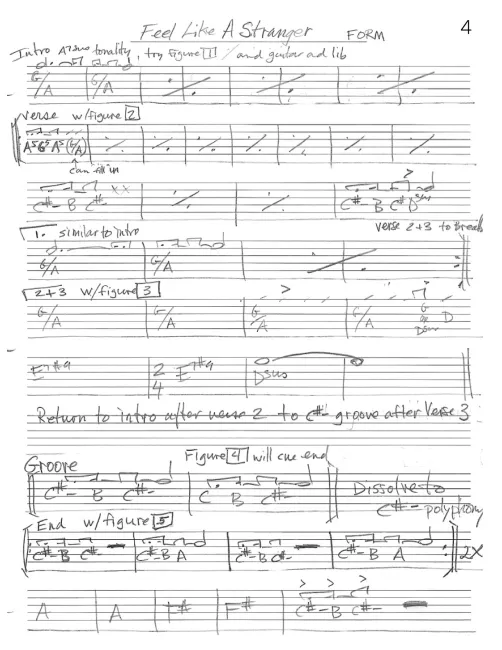 Feel Like A Stranger FORM 4
Intro A7sus tonality, try Figure 1 / and guitar ad lib
G/A G/A
Verse w/figure 2
A5 G5 A5 (G/A)
can fill in
C#- B C#- xx C#- B C#
1. similar to intro Verse 2+3 to
G/A G/A
2+3 w/figure 3
G/A G/A G/A G/A G or Dsus D
E7#9 2/4 E7#9 Dsus
Return to intro after verse 2 to C#- groove after Verse 3
Groove Figure 4 will cue end
C#- B C#- C B C#- Dissolve to
C#- polyphony
End w/figure 5
C#-B C#- C#-B A C#-B C#- C#-B A 2X
A A F# F# C#-B C#-